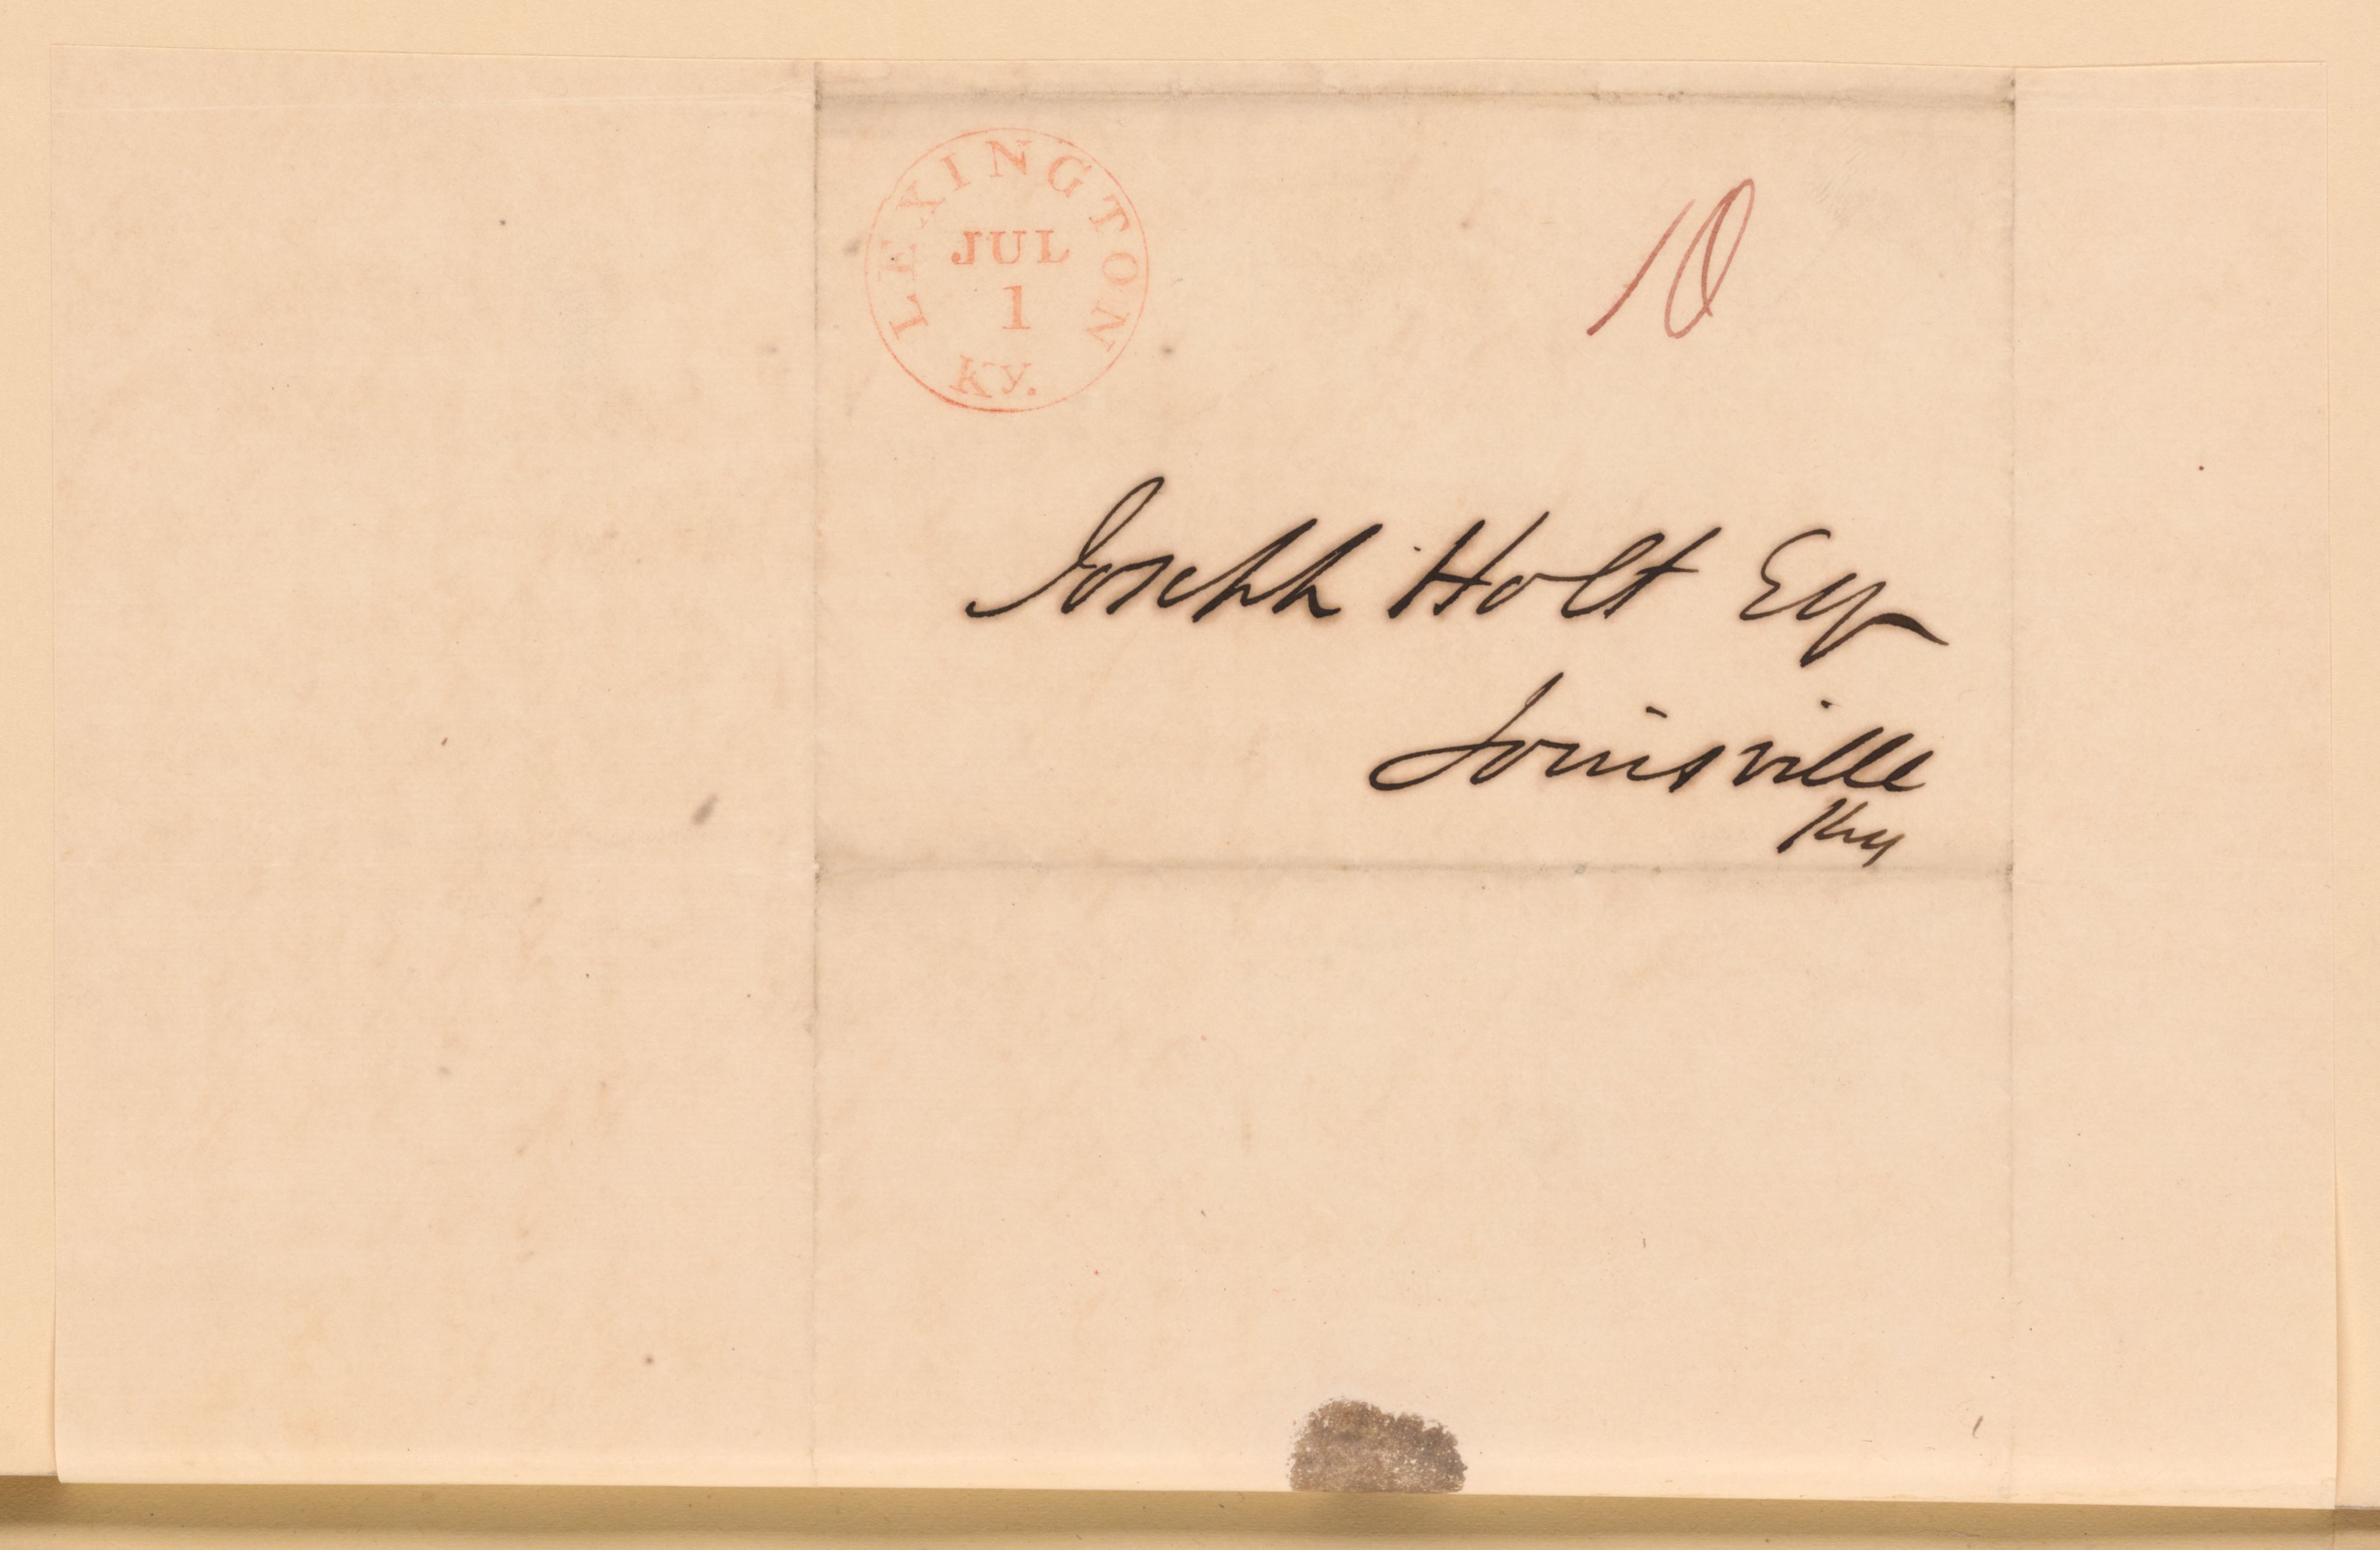 LEXINGTON
JUL
1
KY.
10
Joseph Holt Esq
Louisville
Ky